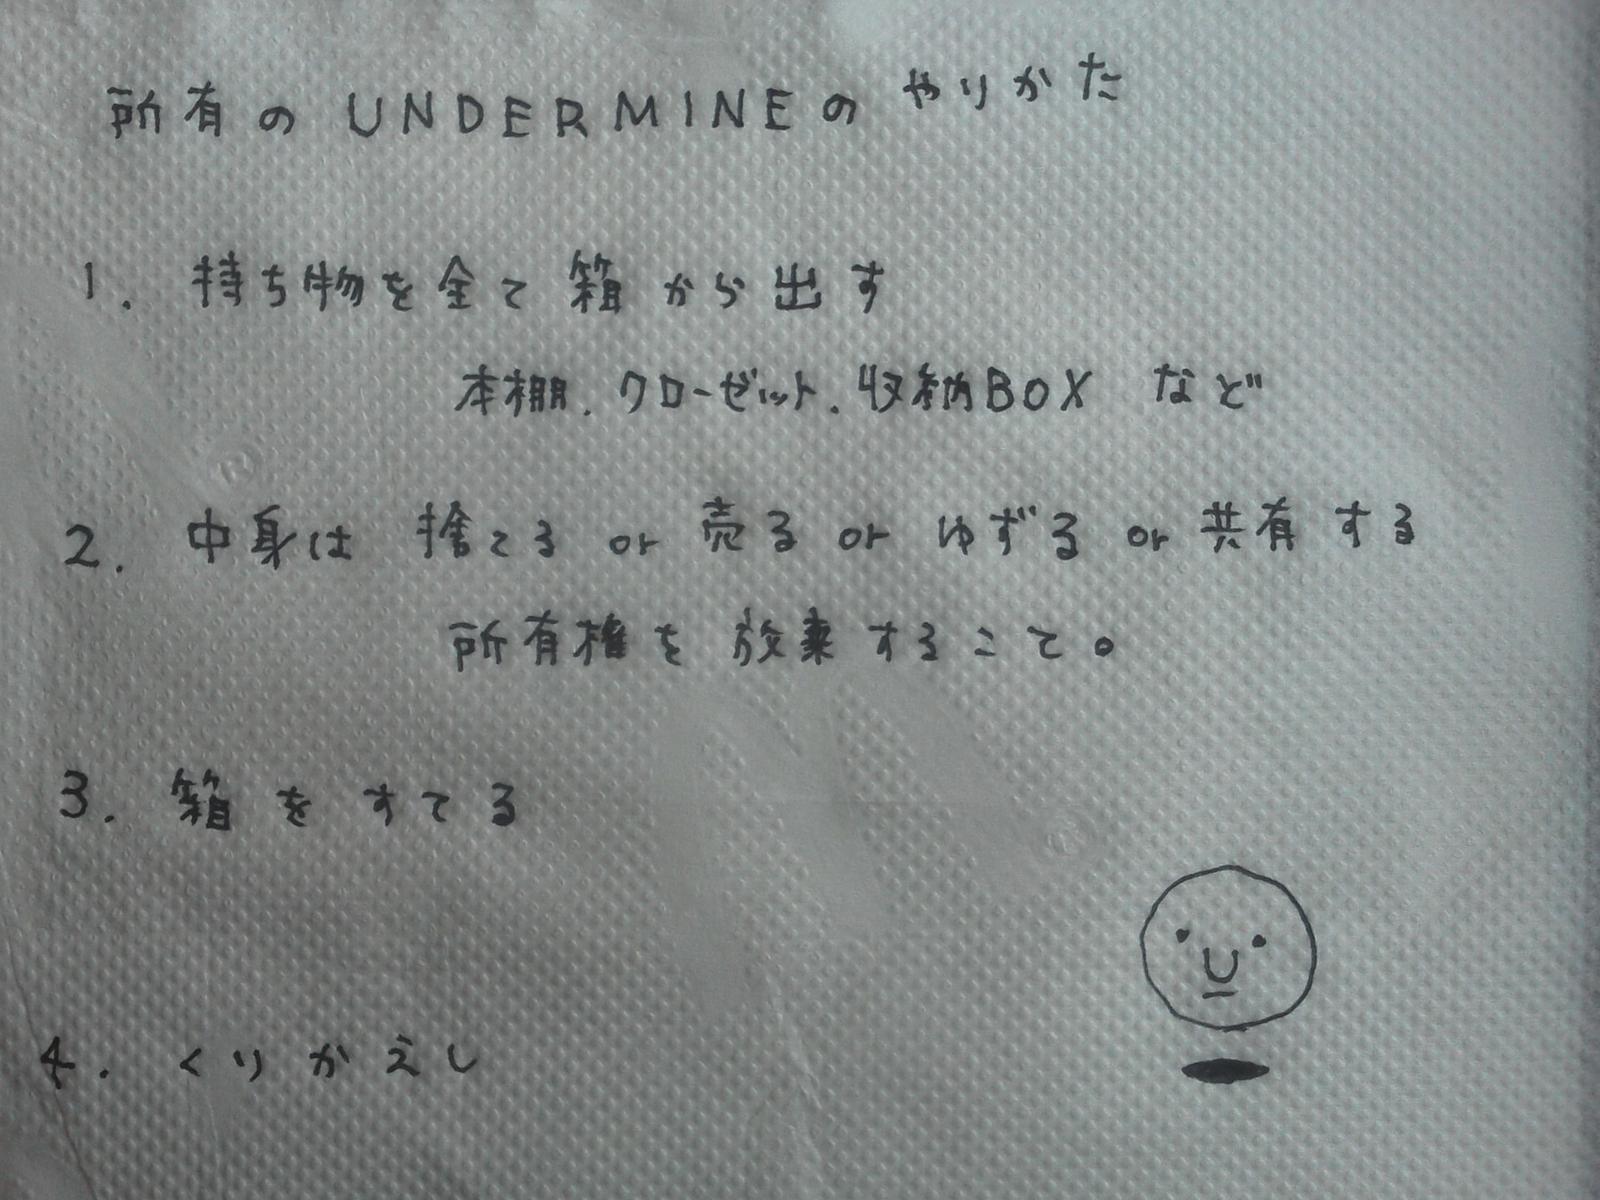 所有の UNDERMINEの やりかた
1. 持ち物を全て箱から出す
本棚.クローゼット.収納BOX など
2. 中身は 捨てる or 売る or ゆずる or 共有する
所有権を放棄すること。
3. 箱をすてる
4. くりかえし